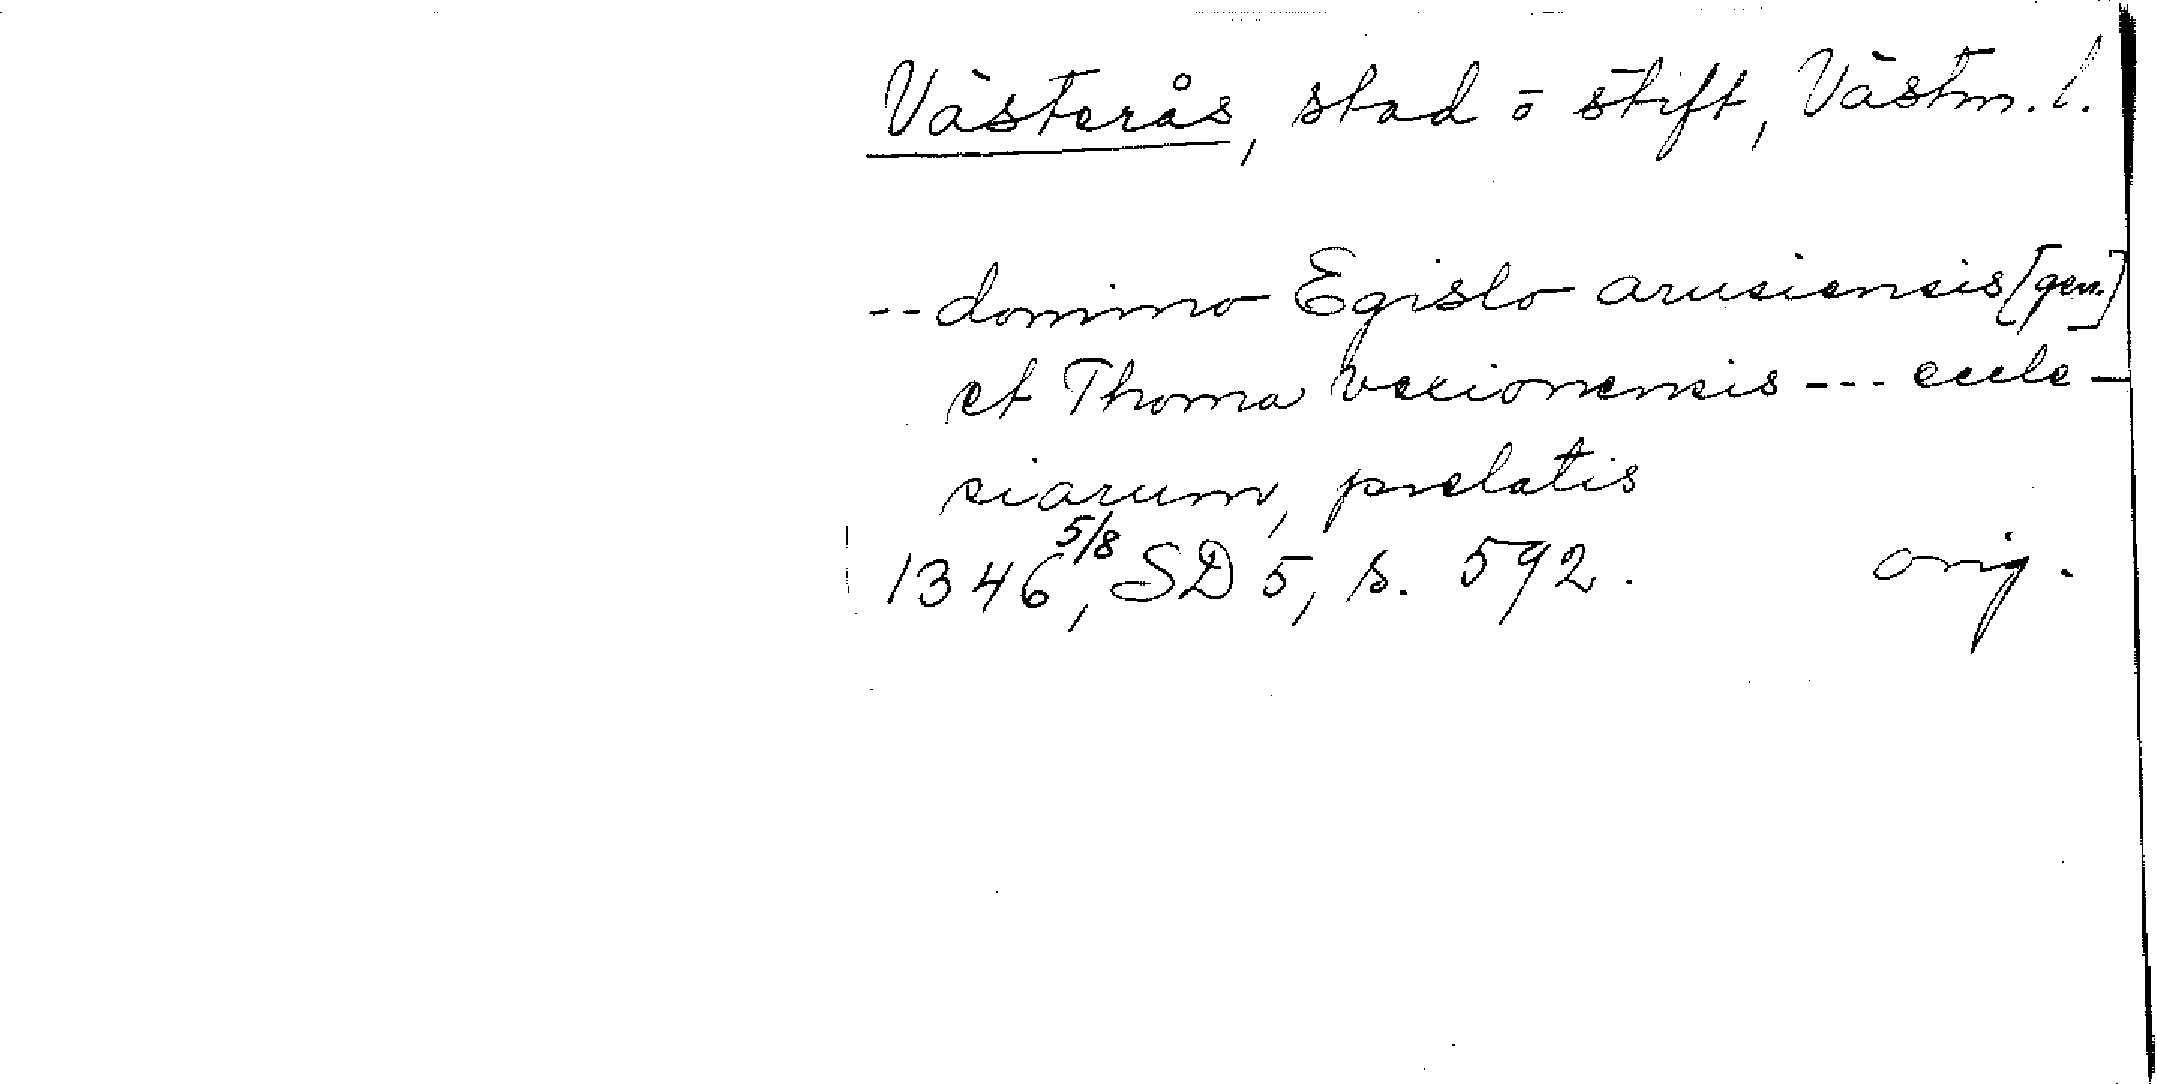 Västerås, stad o stift, Västm. l.
-- domino Egislo arusiensis [gen.]
et Thoma vexionensis --- eccle-
siarum, prelatis
1346 5/8, SD 5, s. 592. orig.